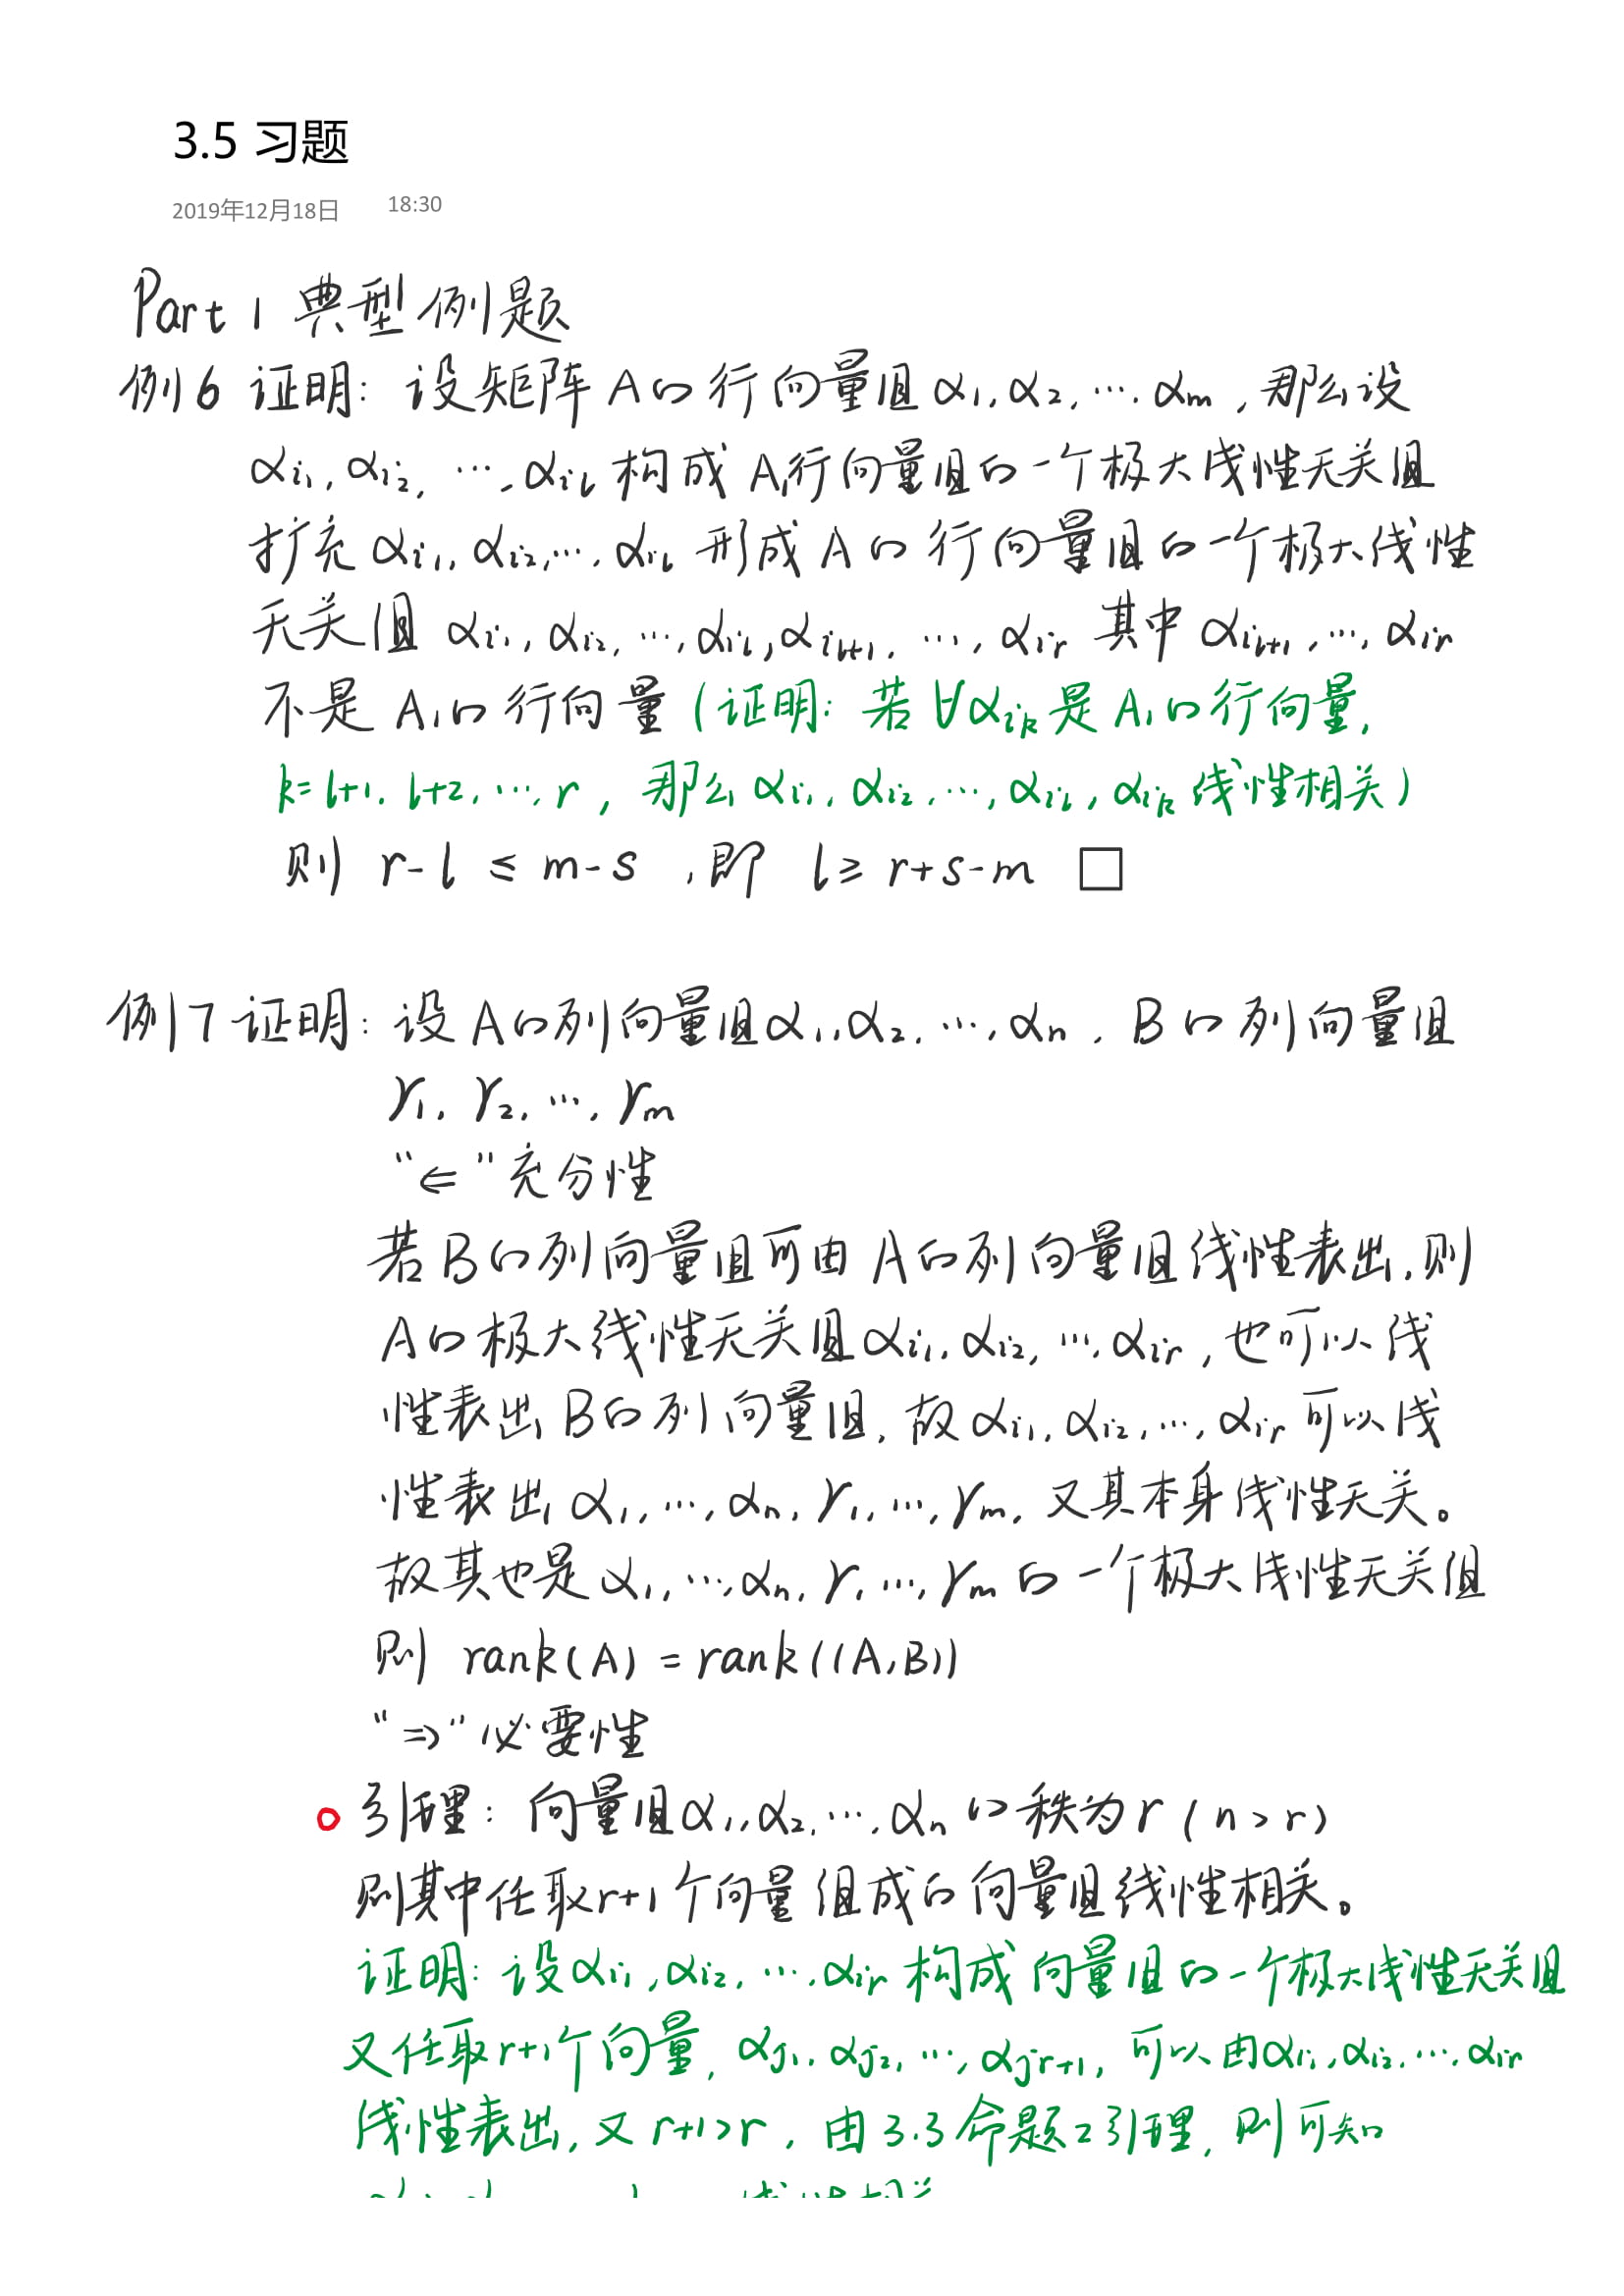 3.5 习题
2019年12月18日 18:30
Part 1 典型例题
例6 证明: 设矩阵A的行向量组α₁,α₂,…,αₘ,那么设
αᵢ₁,αᵢ₂,…,αᵢₗ构成A₁行向量组的一个极大线性无关组
扩充αᵢ₁,αᵢ₂,…,αᵢₗ形成A的行向量组的一个极大线性
无关组 αᵢ₁,αᵢ₂,…,αᵢₗ,αᵢₗ₊₁,…,αᵢᵣ 其中αᵢₗ₊₁,…,αᵢᵣ
不是A₁的行向量(证明: 若∀αᵢₖ是A₁的行向量,
k=l+1,l+2,…,r, 那么αᵢ₁,αᵢ₂,…,αᵢₗ,αᵢₖ线性相关)
则 r-l ≤ m-s ,即 l≥ r+s-m □
例7 证明: 设A的列向量组α₁,α₂,…,αₙ, B的列向量组
γ₁,γ₂,…,γₘ
“⇐”充分性
若B的列向量组可由A的列向量组线性表出,则
A的极大线性无关组αᵢ₁,αᵢ₂,…,αᵢᵣ,也可以线
性表出B的列向量组,故αᵢ₁,αᵢ₂,…,αᵢᵣ可以线
性表出α₁,…,αₙ,γ₁,…,γₘ,又其本身线性无关。
故其也是α₁,…,αₙ,γ₁,…,γₘ的一个极大线性无关组
则 rank(A)=rank((A,B))
“⇒”必要性
引理: 向量组α₁,α₂,…,αₙ的秩为r(n>r)
则其中任取r+1个向量组成的向量组线性相关。
证明: 设αᵢ₁,αᵢ₂,…,αᵢᵣ构成向量组的一个极大线性无关组
又任取r+1个向量,αⱼ₁,αⱼ₂,…,αⱼᵣ₊₁,可以由αᵢ₁,αᵢ₂,…,αᵢᵣ
线性表出,又r+1>r,由3.3命题2引理,则可知